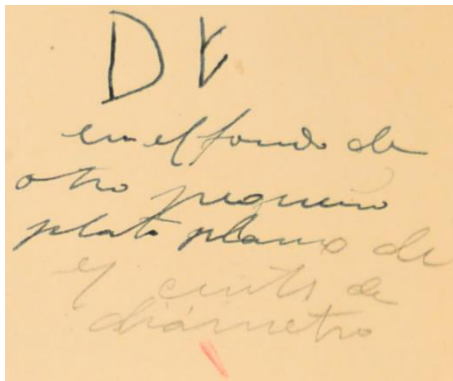 D
en el fondo de
otro pequeño
plato plano de
cents de
diámetro